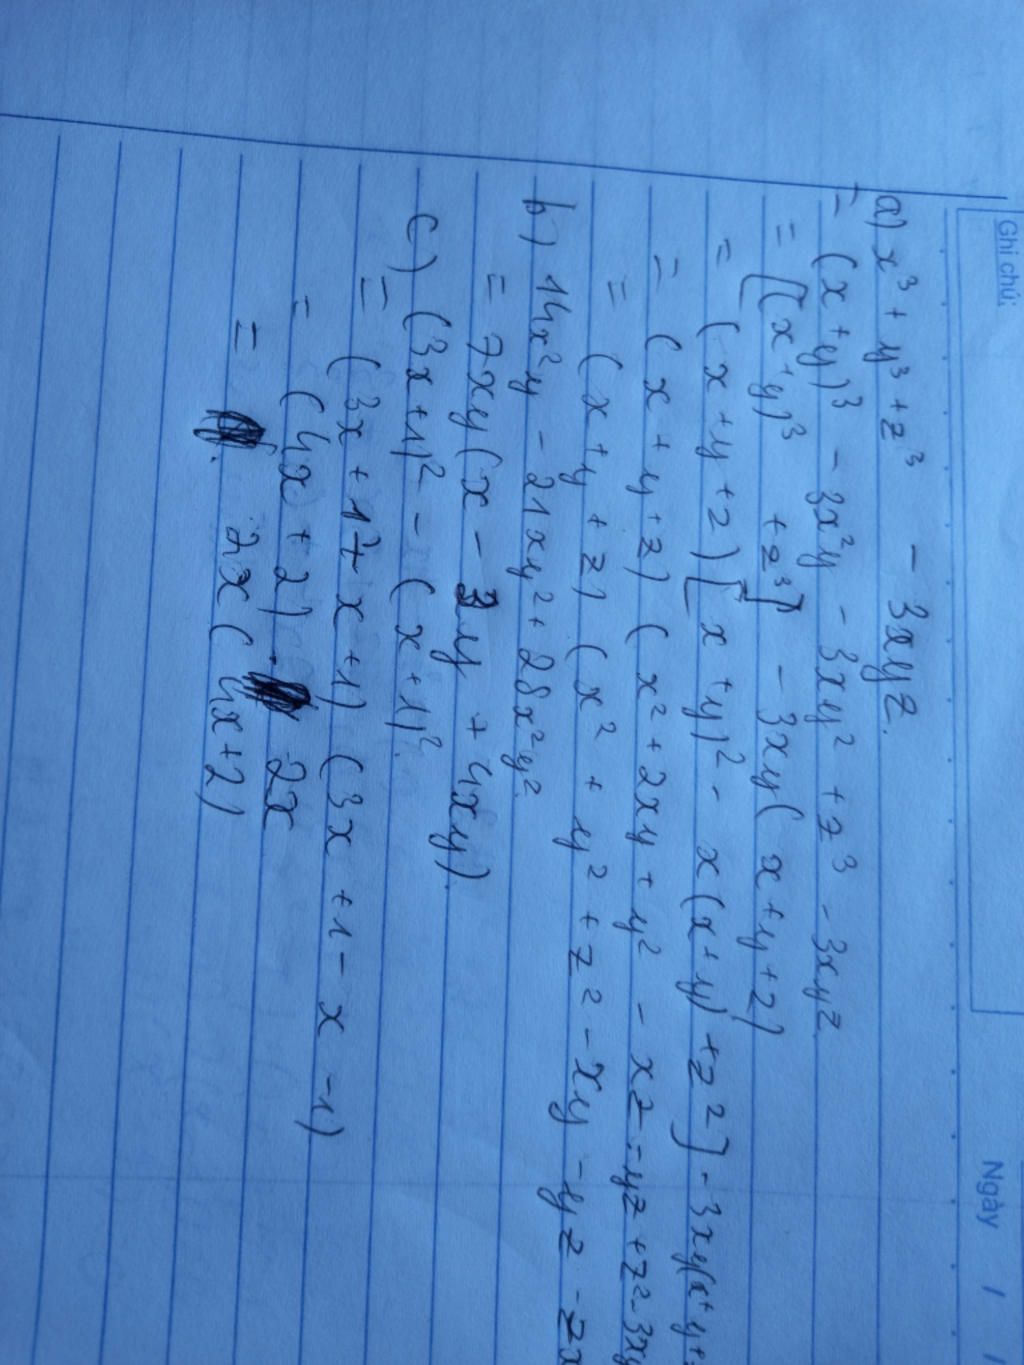 Ghi chú:
Ngày / /
a) x³ + y³ + z³ - 3xyz.
= (x+y)³ - 3x²y - 3xy² + z³ - 3xyz
= [(x+y)³ + z³] - 3xy(x+y+z)
= (x+y+z)[x+y)² - x(x+y) + z²] - 3xy(x+y+
= (x+y+z) (x² + 2xy + y² - xz - yz + z² - 3xy
= (x+y+z) (x² + y² + z² - xy - yz - zx
b) 14x²y - 21xy² + 28x²y².
= 7xy(x - 3y + 4xy).
c) (3x+1)² - (x+1)².
= (3x+1²+ x+1) (3x+1-x-1)
= (4x+2) . 2x
= 2x(4x+2)